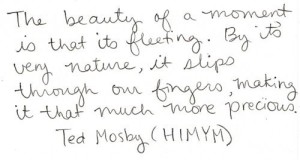 The beauty of a moment
is that its fleeting. By its
very nature, it slips
through our fingers, making
it that much more precious.
Ted Mosby (HIMYM)